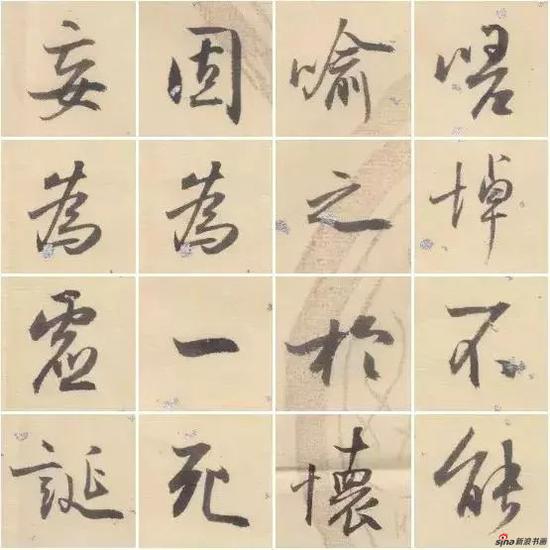 嗟悼不能
喻之於懷
固為一死
妄為虛誕
sina新浪书画